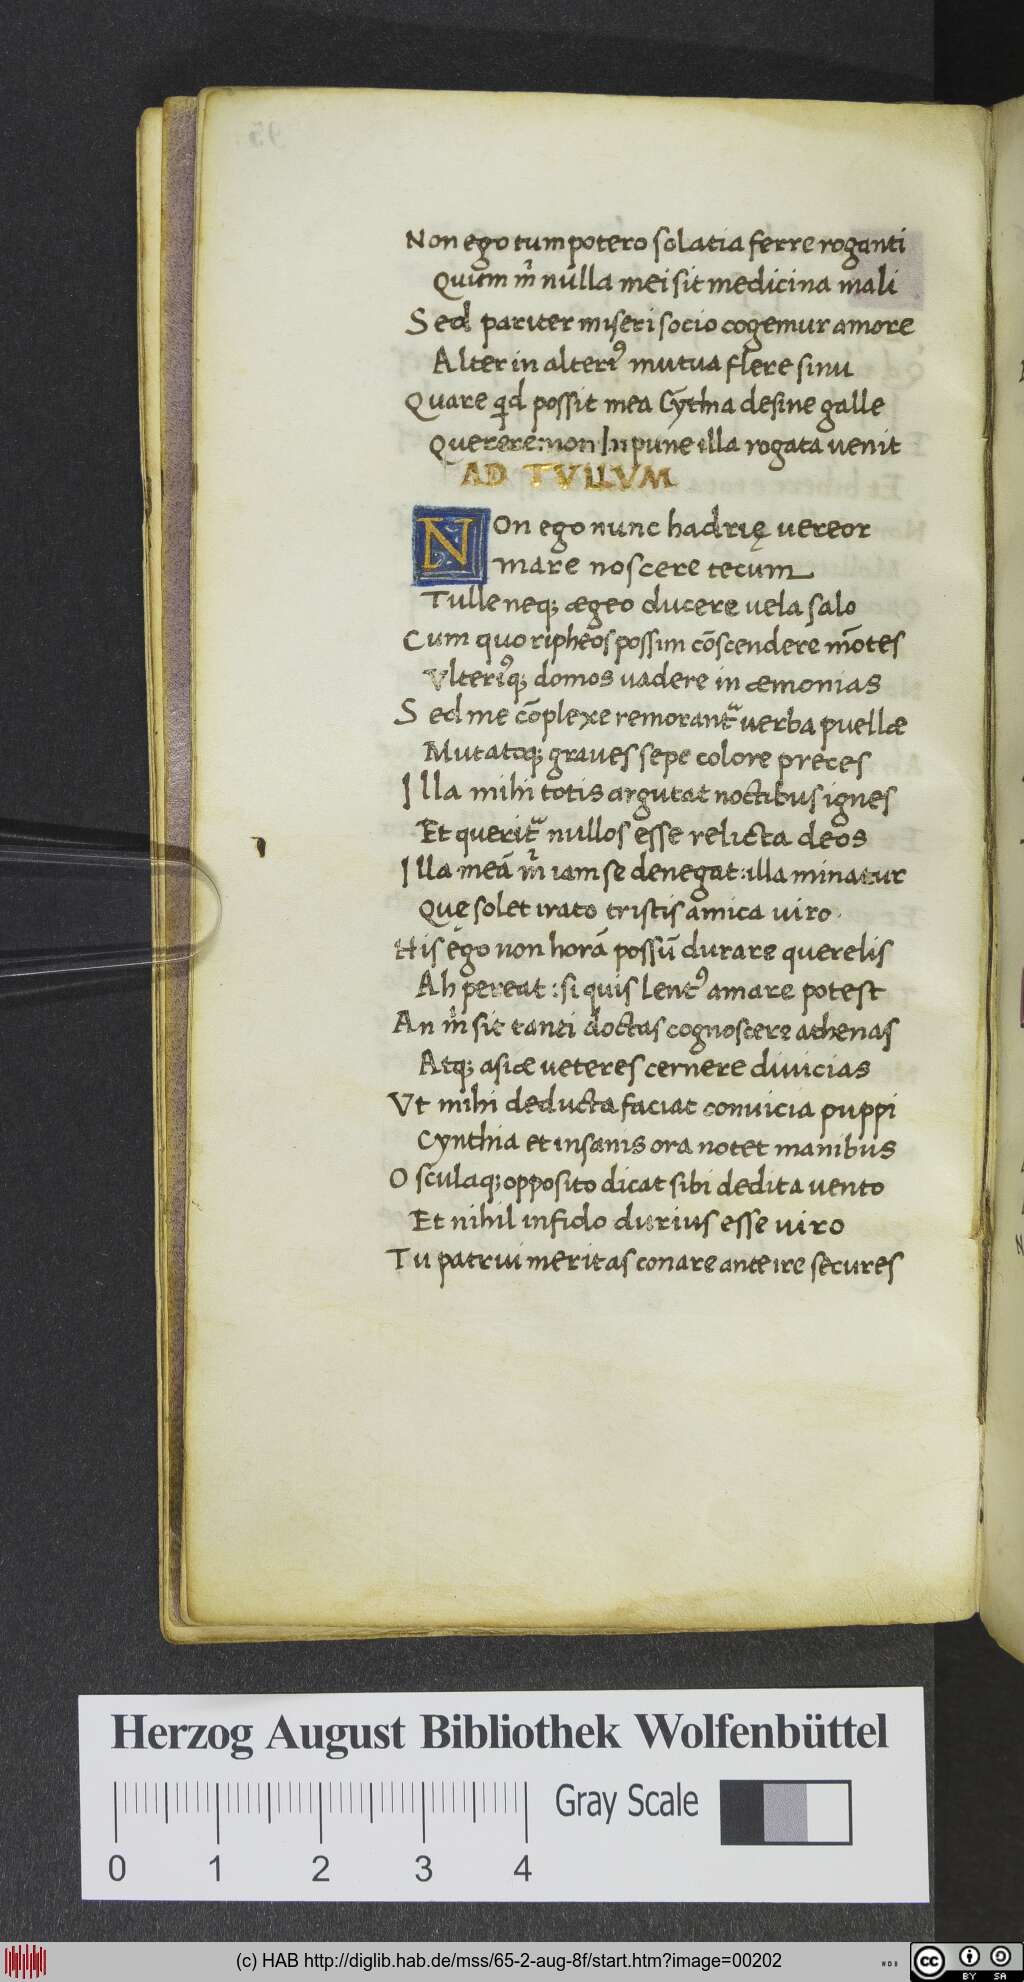 Non ego tum potero solatia ferre roganti
Quum m̄ nulla mei sit medicina mali
Sed pariter miseri socio cogemur amore
Alter in alteri⁹ mutua flere sinu
Quare qd possit mea Cȳthia desine galle
Querere: non Inpune illa rogata venit
AD TVLLVM
Non ego nunc hadrię vereor
mare noscere tecum
Tulle neq; ægeo ducere vela salo
Cum quo ripheos possim cōscendere mōtes
Vlteri⁹q; domos vadere in æmonias
Sed me cōplexe remorant᷑ verba puellæ
Mutatoq; graves sepe colore preces
Illa mihi totis argutat noctibus ignes
Et querit᷑ nullos esse relicta deos
Illa meā m̄ iam se denegat: illa minatur
Que solet irato tristis amica viro.
His ego non horā possū durare querelis
Ah pereat: si quis lent⁹ amare potest
An m̄ sit tanti doctas cognoscere athenas
Atq; asiæ veteres cernere divicias
Vt mihi deducta faciat convicia puppi
Cynthia et insanis ora notet manibus
Osculaq; opposito dicat sibi dedita vento
Et nihil infido durius esse viro
Tu patrui meritas conare anteire secures
Herzog August Bibliothek Wolfenbüttel
Gray Scale
0 1 2 3 4
(c) HAB http://diglib.hab.de/mss/65-2-aug-8f/start.htm?image=00202
cc BY SA